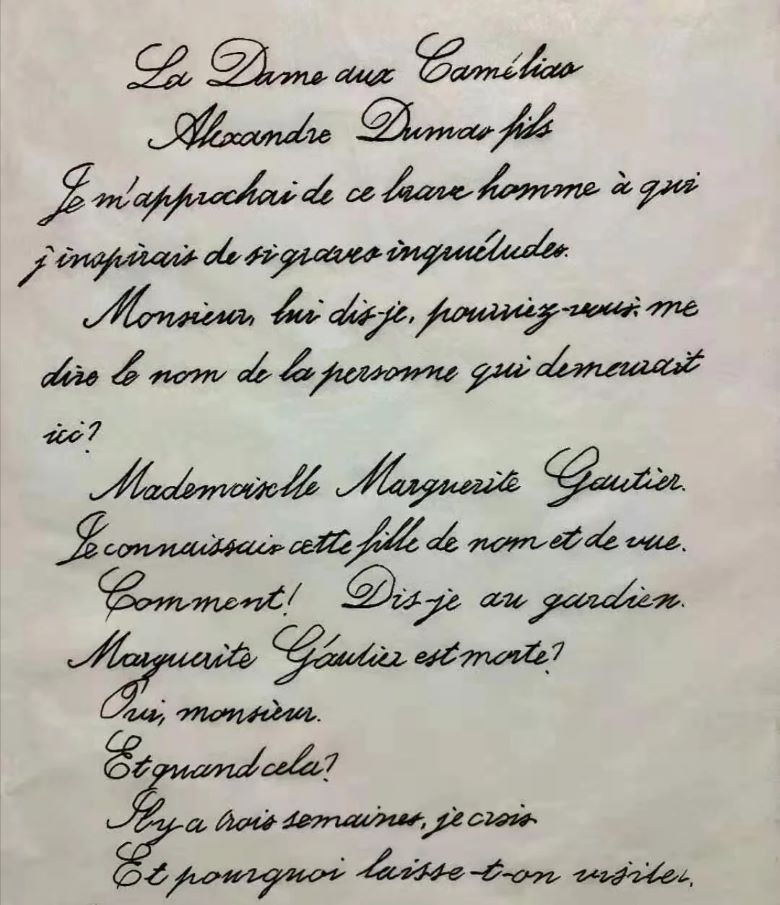 La Dame aux Camélias
Alexandre Dumas fils
Je m'approchai de ce brave homme à qui
j'inspirais de si graves inquiétudes.
Monsieur, lui dis-je, pourriez-vous me
dire le nom de la personne qui demeurait
ici?
Mademoiselle Marguerite Gautier.
Je connaissais cette fille de nom et de vue.
Comment! Dis-je au gardien.
Marguerite Gautier est morte?
Oui, monsieur.
Et quand cela?
Il y a trois semaines, je crois
Et pourquoi laisse-t-on visiter.